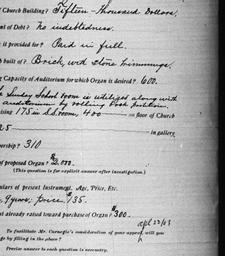 Church Building? Fifteen-Thousand Dollars.
nt of Debt? No indebtedness.
is provided for? Paid in full.
h built of? Brick, with stone trimmings.
g Capacity of Auditorium for which Organ is desired? 600.
Sunday School room is utilized along with
auditorium by rolling
175 in S.S. room, 400 — floor of Church
25 in gallery
bership? 310
of proposed Organ? $2,000.
(This question is for explicit answer after investigation.)
culars of present Instrument, Age, Price, Etc.
price $135.
nt already raised toward purchase of Organ? $300.
To facilitate Mr. Carnegie's consideration of your appeal, will you
ge by filling in the above?
Precise answer to each question is necessary.